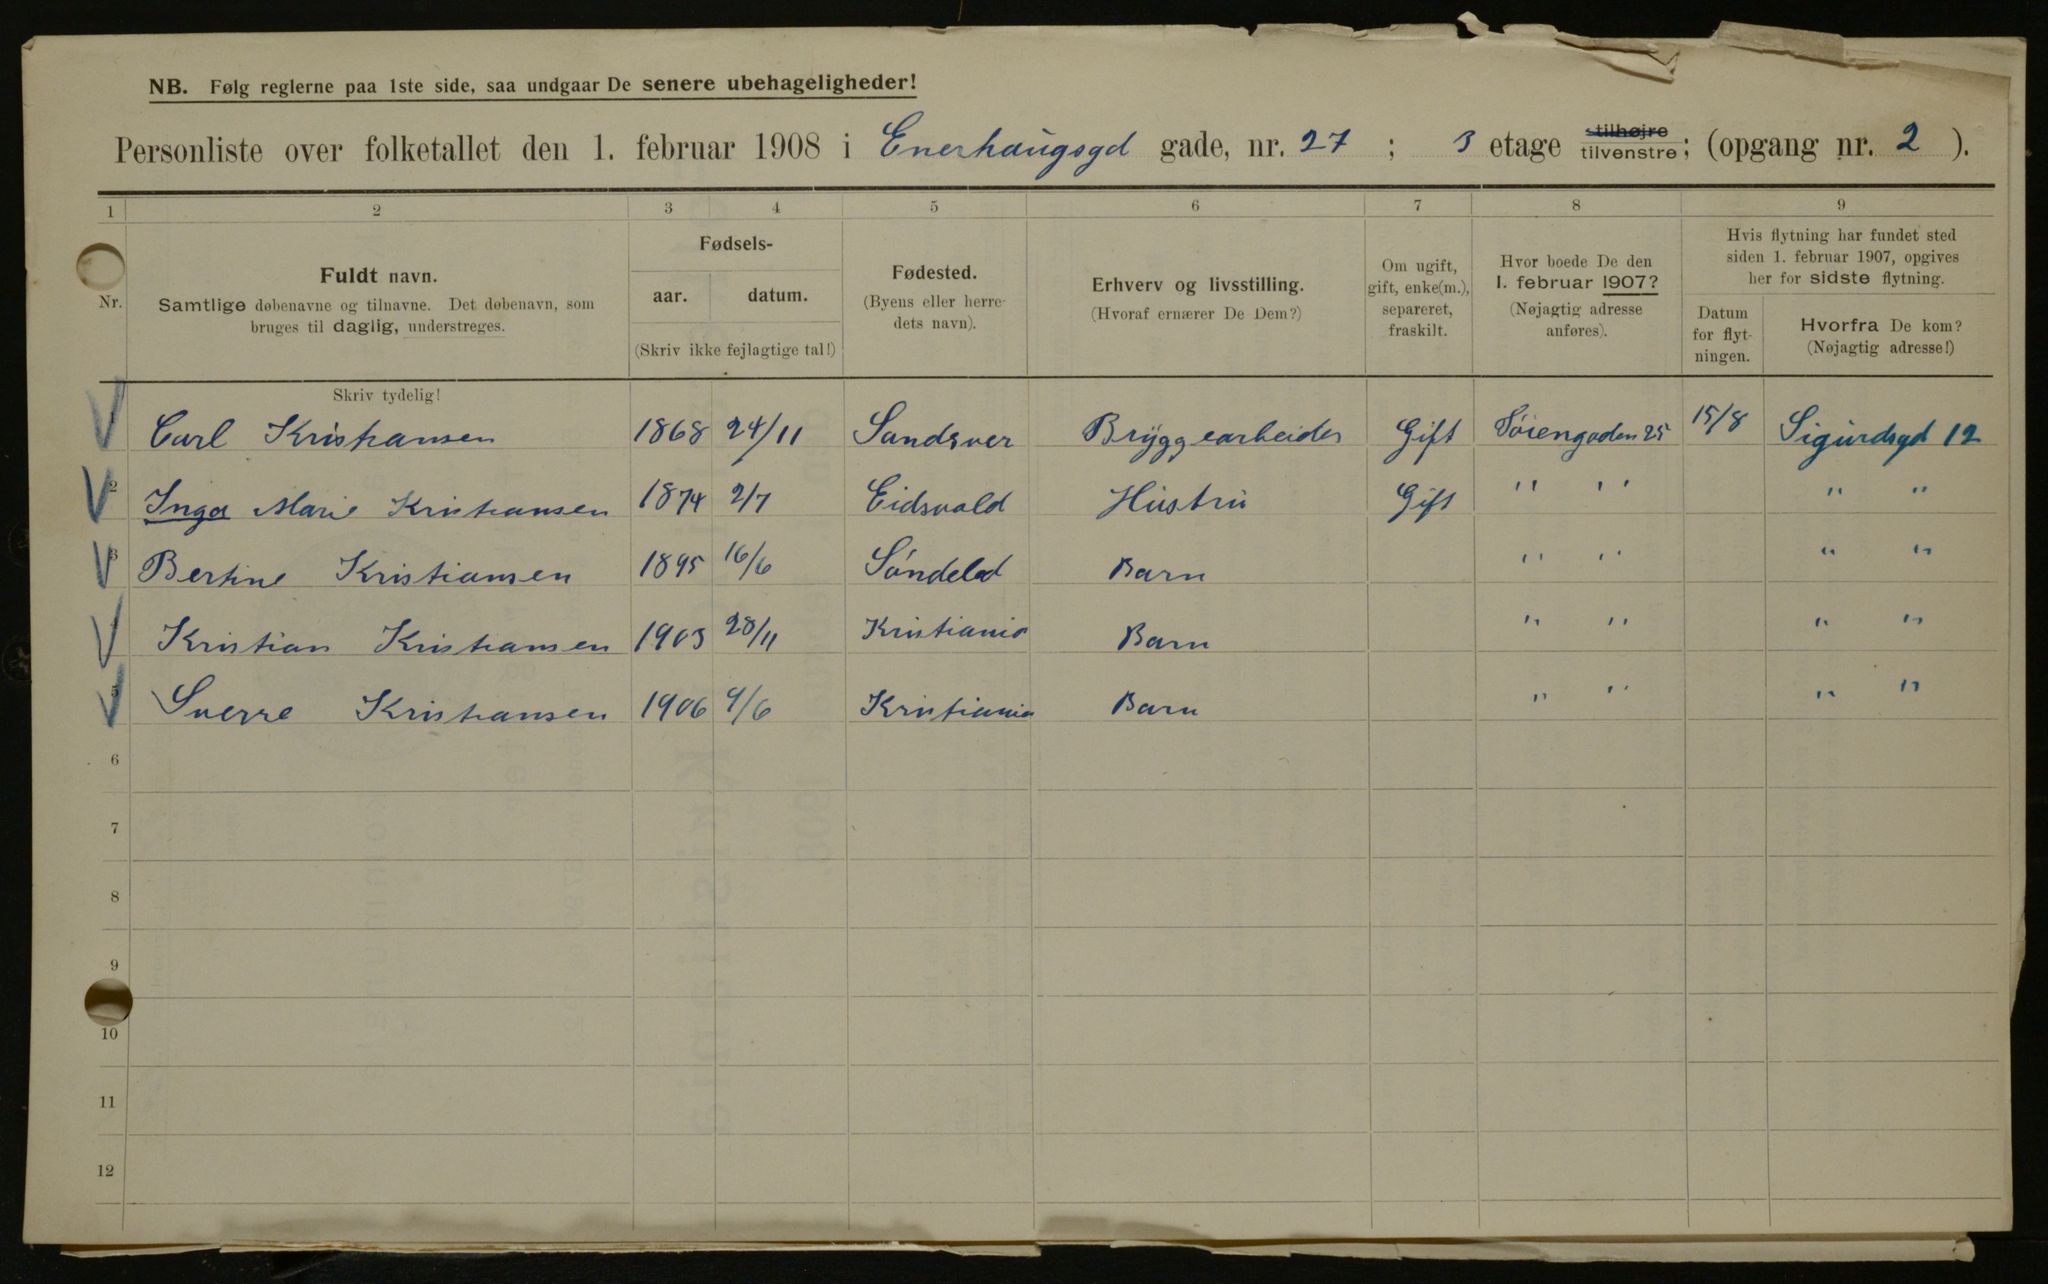 NB. Følg reglerne paa 1ste side, saa undgaar De senere ubehageligheder!
Personliste over folketallet den 1. februar 1908 i Enerhaugsgd gade, nr. 27 ; 3 etage tilhøjre tilvenstre; (opgang nr. 2 ).
1 2 3 4 5 6 7 8 9
Nr.
Fuldt navn.
Samtlige døbenavne og tilnavne. Det døbenavn, som
bruges til daglig, understreges.
Fødsels-
aar. datum.
(Skriv ikke fejlagtige tal!)
Fødested.
(Byens eller herre-
dets navn).
Erhverv og livsstilling.
(Hvoraf ernærer De Dem?)
Om ugift,
gift, enke(m.),
separeret,
fraskilt.
Hvor boede De den
1. februar 1907?
(Nøjagtig adresse
anføres).
Hvis flytning har fundet sted
siden 1. februar 1907, opgives
her for sidste flytning.
Datum
for flyt-
ningen.
Hvorfra De kom?
(Nøjagtig adresse!)
Skriv tydelig!
1 Carl Kristiansen 1868 24/11 Sandsver Bryggearbeider Gift Söiengaden 25 15/8 Sigurdsgd 12
2 Inga Marie Kristiansen 1874 2/7 Eidsvold Hustru Gift " " " "
3 Bertine Kristiansen 1895 16/6 Söndeled Barn " " " "
4 Kristian Kristiansen 1903 28/11 Kristiania Barn " " " "
5 Sverre Kristiansen 1906 9/6 Kristiania Barn " " " "
6
7
8
9
10
11
12